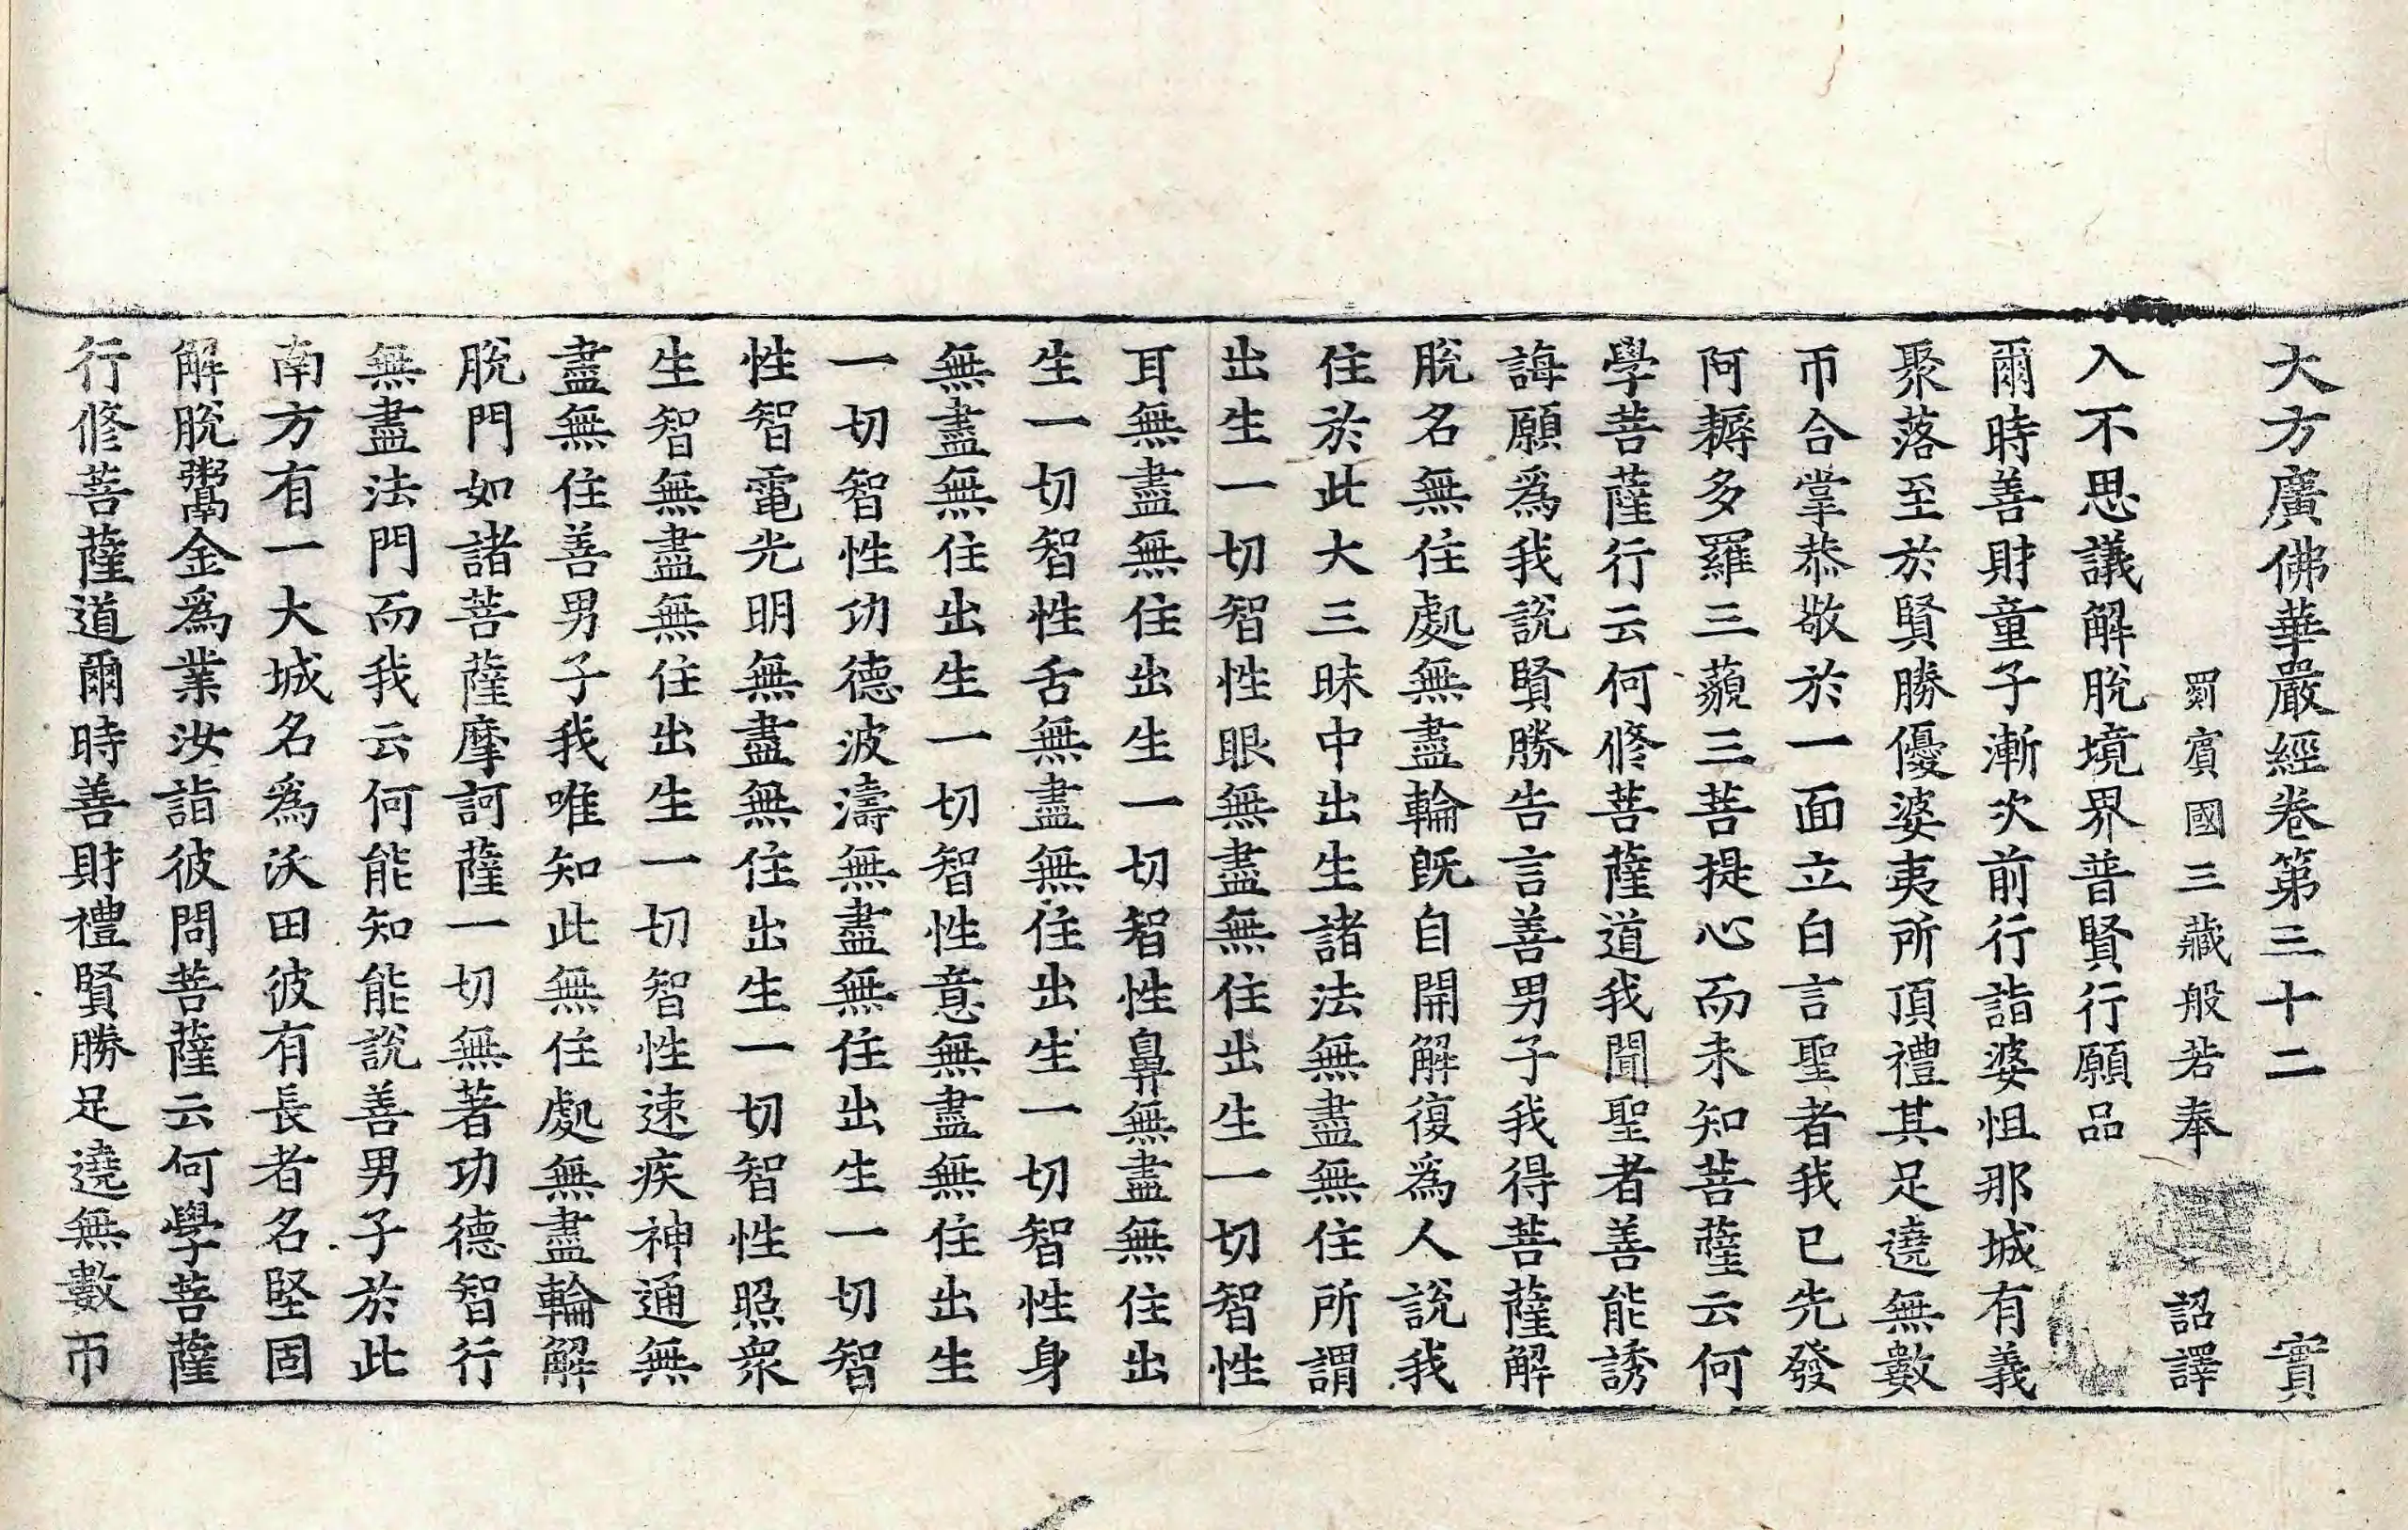 大方廣佛華嚴經卷第三十二　實
罽賓國三藏般若奉　詔譯
入不思議解脫境界普賢行願品
爾時善財童子漸次前行詣婆怚那城有義
聚落至於賢勝優婆夷所頂禮其足遶無數
帀合掌恭敬於一面立白言聖者我已先發
阿耨多羅三藐三菩提心而未知菩薩云何
學菩薩行云何修菩薩道我聞聖者善能誘
誨願爲我說賢勝告言善男子我得菩薩解
脫名無住處無盡輪旣自開解復爲人說我
住於此大三昧中出生諸法無盡無住所謂
出生一切智性眼無盡無住出生一切智性
耳無盡無住出生一切智性鼻無盡無住出
生一切智性舌無盡無住出生一切智性身
無盡無住出生一切智性意無盡無住出生
一切智性功德波濤無盡無住出生一切智
性智電光明無盡無住出生一切智性照衆
生智無盡無住出生一切智性速疾神通無
盡無住善男子我唯知此無住處無盡輪解
脫門如諸菩薩摩訶薩一切無著功德智行
無盡法門而我云何能知能說善男子於此
南方有一大城名爲沃田彼有長者名堅固
解脫鬻金爲業汝詣彼問菩薩云何學菩薩
行修菩薩道爾時善財禮賢勝足遶無數帀